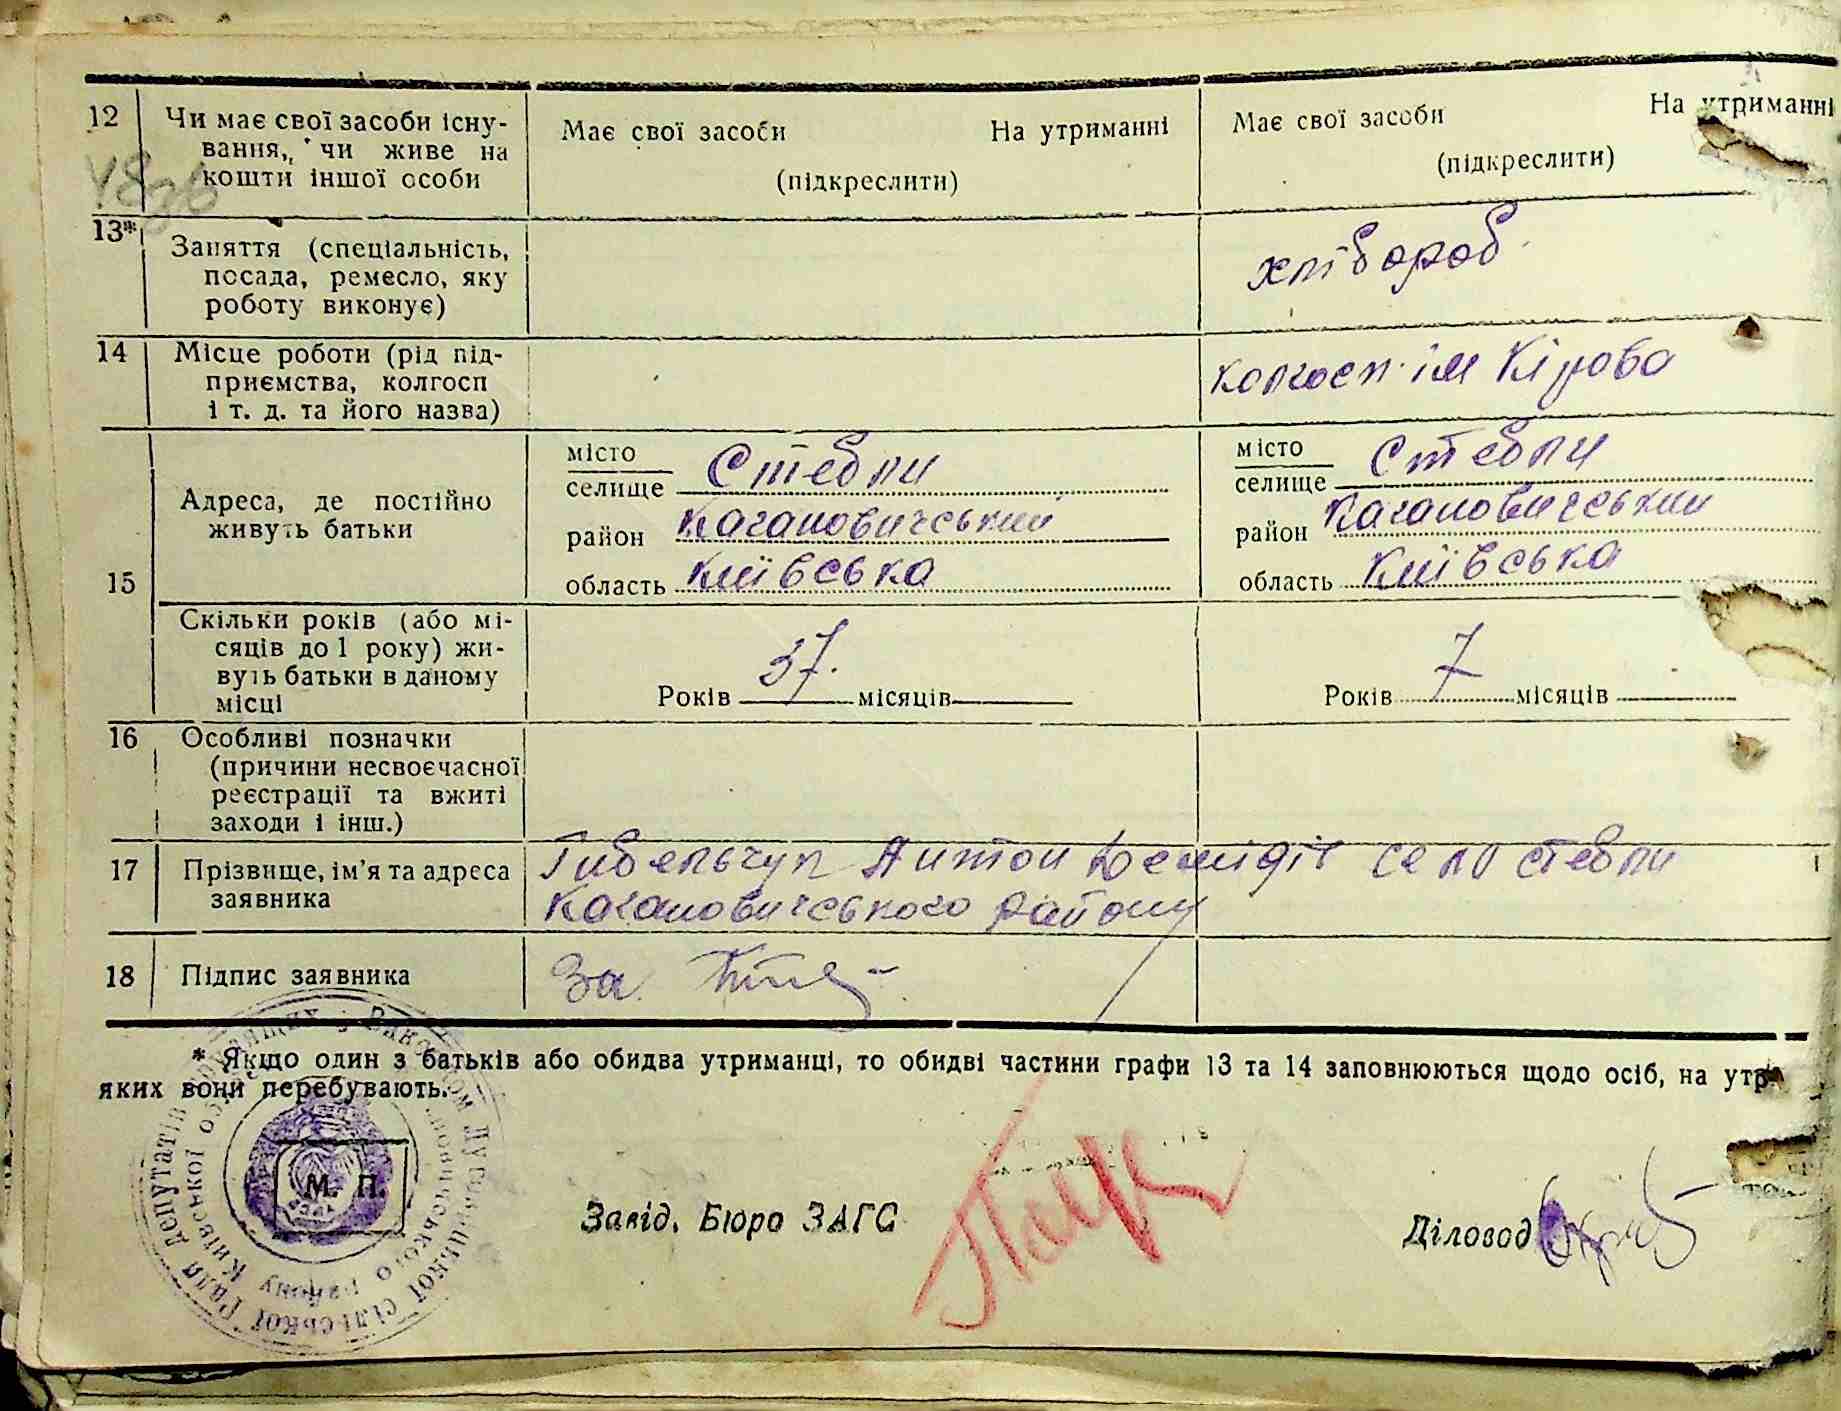 12 Чи має свої засоби існу-
вання, чи живе на
кошти іншої особи
Має свої засоби На утриманні
(підкреслити)
Має свої засоби На утриманні
(підкреслити)
13* Заняття (спеціальність,
посада, ремесло, яку
роботу виконує)
хлібороб
14 Місце роботи (рід під-
приємства, колгосп
і т. д. та його назва)
колгосп ім Кірова
15
Адреса, де постійно
живуть батьки
місто
селище Стебли
район Кагановичський
область Київська
місто
селище Стебли
район Кагановичський
область Київська
Скільки років (або мі-
сяців до 1 року) жи-
вуть батьки в даному
місці
Років 37. місяців
Років 7 місяців
16 Особливі позначки
(причини несвоєчасної
реєстрації та вжиті
заходи і інш.)
17 Прізвище, ім'я та адреса
заявника
Антон Демидіч село стебли
Кагановичського району
18 Підпис заявника
За
* Якщо один з батьків або обидва утриманці, то обидві частини графи 13 та 14 заповнюються щодо осіб, на утр
яких вони перебувають.
М. П.
Завід. Бюро ЗАГС
Діловод
сільської Ради депутатів
Київської
району